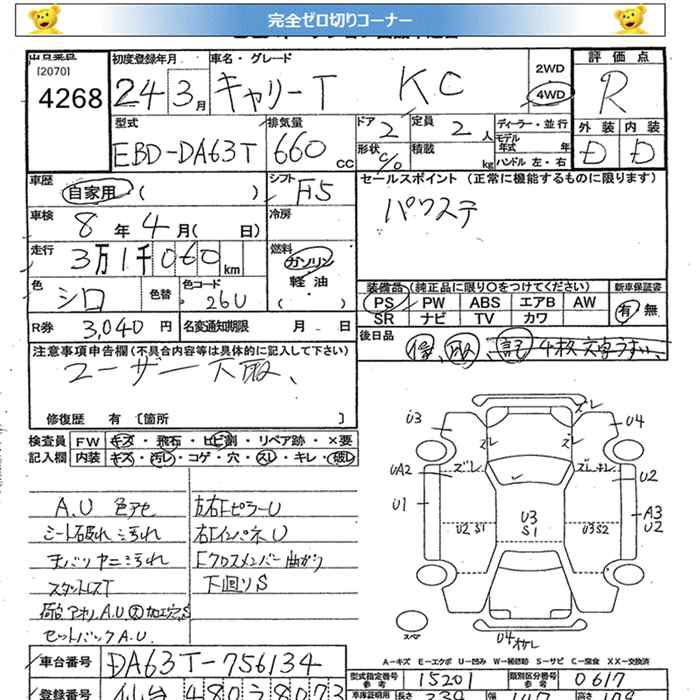 完全ゼロ切りコーナー
出品票番
[2070]
4268
初度登録年月
24年3月
車名・グレード
キャリーT KC
2WD
4WD
評価点
R
外装 内装
D D
型式
EBD-DA63T
排気量
660 CC
ドア 2
形状 C/O
定員 2人
積載 kg
ディーラー・並行
モデル年式 年
ハンドル 左・右
車歴
自家用 ( )
シフト F5
セールスポイント (正常に機能するものに限ります)
パワステ
車検
8年4月( 日)
冷房
走行
3万1千060km
燃料
ガソリン
軽油
( )
色
シロ
色替
色コード
26U
装備品 (純正品に限り〇をつけてください)
PS PW ABS エアB AW
SR ナビ TV カワ
新車保証書
有 無
R券 3,040円
名変通知期限 月 日
後日品
保 取 記 4枚文字うすい
注意事項申告欄 (不具合内容等は具体的に記入して下さい)
ユーザー下取、
修復歴 有 [箇所 ]
検査員記入欄
FW キズ・飛石・ヒビ割・リペア跡・×要
内装 キズ・汚レ・コゲ・穴・スレ・キレ・破レ
A.U 色アセ
シート破れ 汚れ
天バリ ヤニ汚れ
スタットレスT
荷台アオリ A.U 大 加工穴 S
セットバックA.U
左右FピラーU
右FインパネU
Fクロスメンバー曲がり
下回りS
U3
ズレ
U4
ズレ
ズレ
UA2
ズレ
ズレ
U2
U1
U2 S1
U3
S1
U3S2
A3
U2
スペア
U4
A-キズ E-エクボ U-凹み W-補修跡 S-サビ C-腐食 XX-交換済
車台番号
DA63T-756134
型式指定番号 参考 15201
類別区分番号 参考 0617
登録番号
仙台 480 8073
車庫証明用
長さ 339